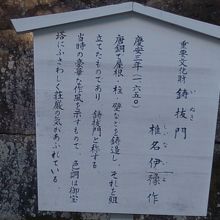 重要文化財
鋳抜門
いぬき
椎名伊豫作
しいな いよ
慶安三年(一六五〇)
唐銅で屋根・柱・壁などを鋳造し、それを組
立てたものであり 鋳抜門と称する
当時の豪華な作風を示すもので、色調は御宝
塔にふさわしく荘厳の気があふれている